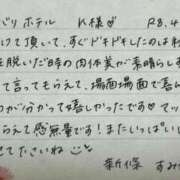 ぱりホテル K様♡ R8.4
けて頂いて、すぐドキドキしたのは私
を脱いだ時の肉体美が素晴らし
て言ってもらえて、場面場面で喜ん
のが分かって嬉しかったです♡マッ
らえて感無量です!またいっぱい
せて下さいね
新條 すみ